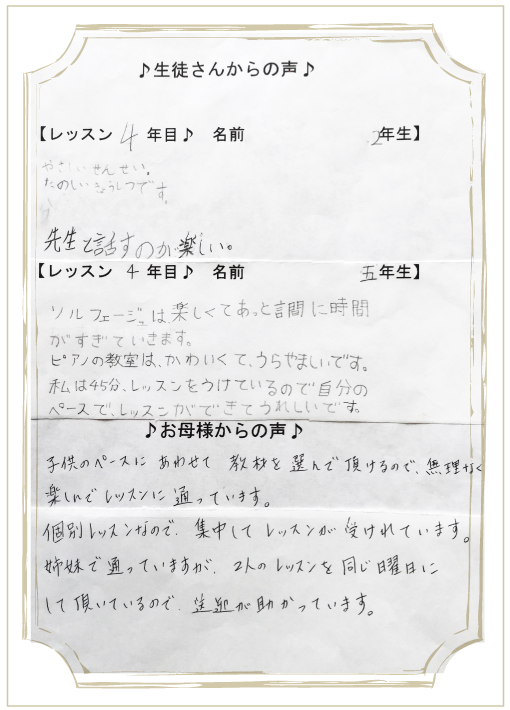 ♪生徒さんからの声♪
【レッスン 4 年目♪ 名前 2年生】
やさしいせんせい。
たのしいきょうしつです。
先生と話すのが楽しい。
【レッスン 4 年目♪ 名前 五年生】
ソルフェージュは楽しくてあっと言間に時間
がすぎていきます。
ピアノの教室は、かわいくて、うらやましいです。
私は45分、レッスンをうけているので自分の
ペースで、レッスンができてうれしいです。
♪お母様からの声♪
子供のペースに あわせて 教材を 選んで頂けるので、無理なく
楽しんでレッスンに 通っています。
個別レッスンなので、集中して レッスンが 受けれています。
姉妹で通っていますが、2人の レッスンを 同じ曜日に
して頂いているので、送迎が助かっています。